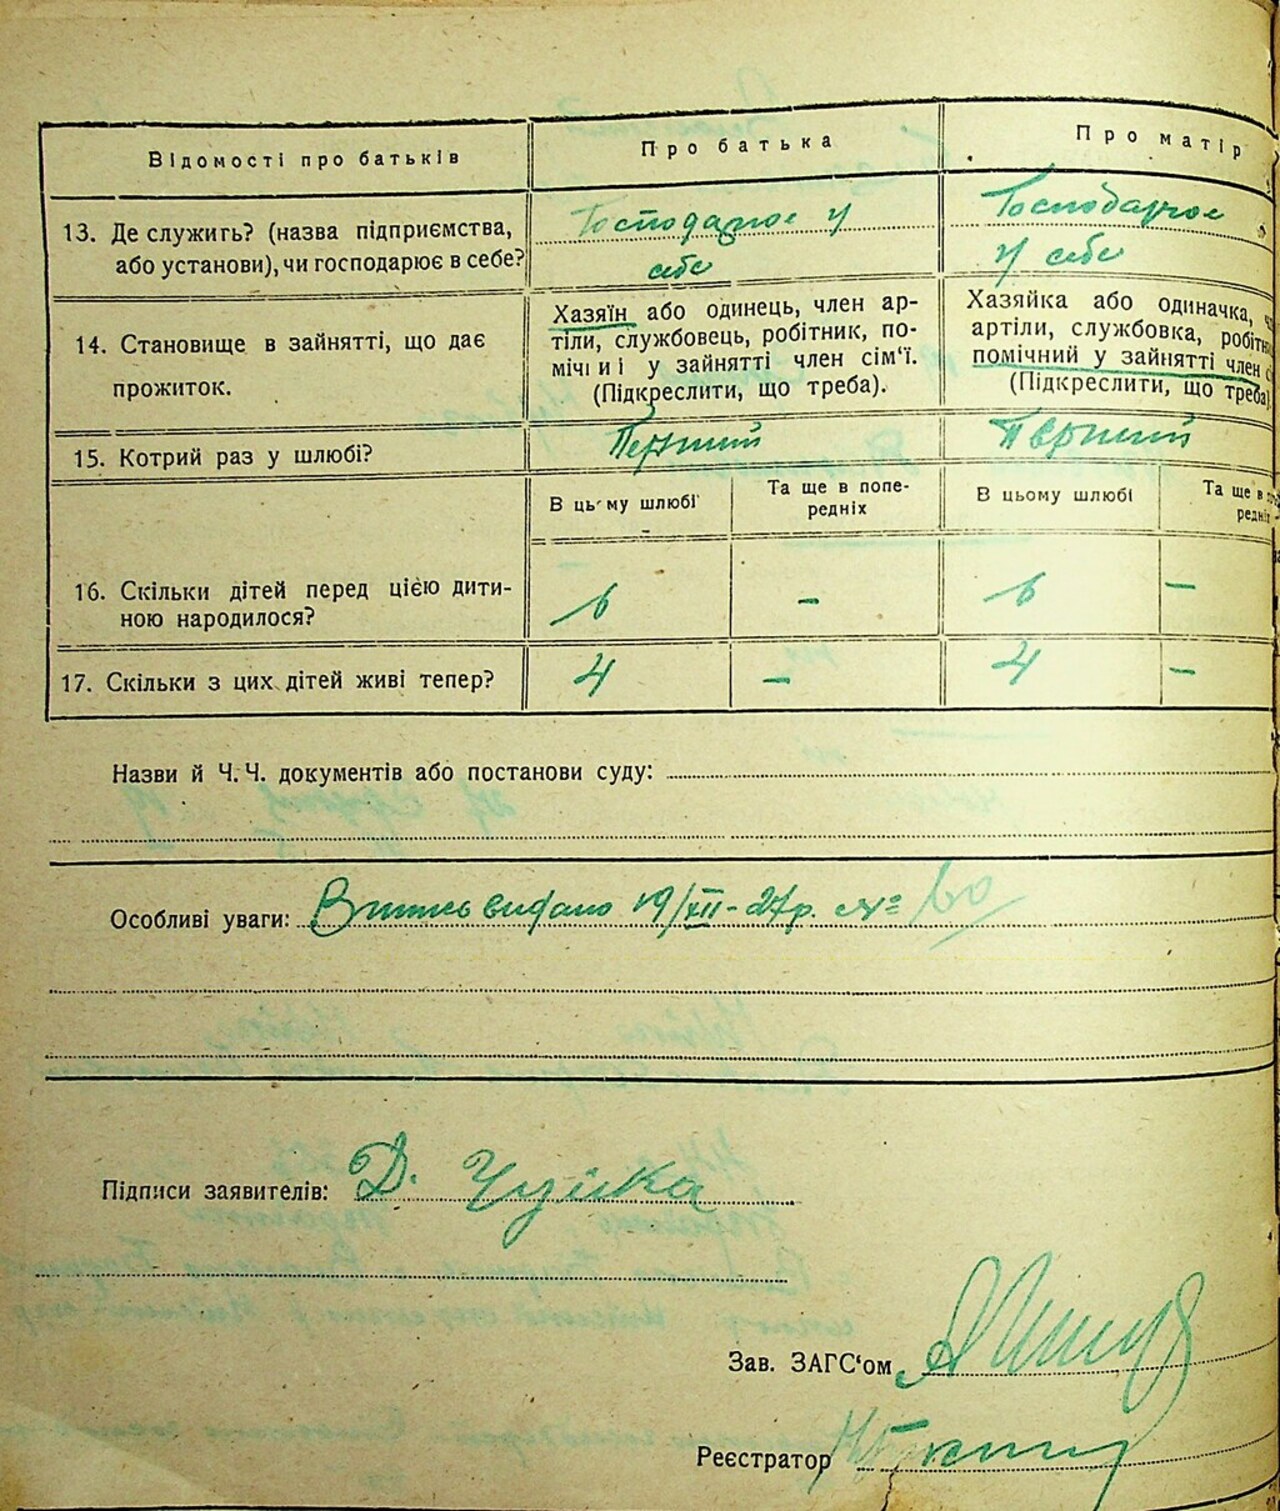 Відомості про батьків
Про батька
Про матір
13. Де служить? (назва підприємства,
або установи), чи господарює в себе?
Господарює у
себе
Господарює
у себе
14. Становище в зайнятті, що дає
прожиток.
Хазяїн або одинець, член ар-
тіли, службовець, робітник, по-
мічниі у зайнятті член сім'ї.
(Підкреслити, що треба).
Хазяйка або одиначка,
артіли, службовка,
помічний у зайнятті член
(Підкреслити, що треба)
15. Котрий раз у шлюбі?
Перший
Перший
В цьму шлюбі
Та ще в попе-
редніх
В цьому шлюбі
Та ще в
16. Скільки дітей перед цією дити-
ною народилося?
6
-
6
-
17. Скільки з цих дітей живі тепер?
4
-
4
-
Назви й Ч. Ч. документів або постанови суду:
Особливі уваги: Випис видано 19/XII-27р. № 60
Підписи заявителів: Д. Чуйка
Зав. ЗАГС'ом
Реєстратор